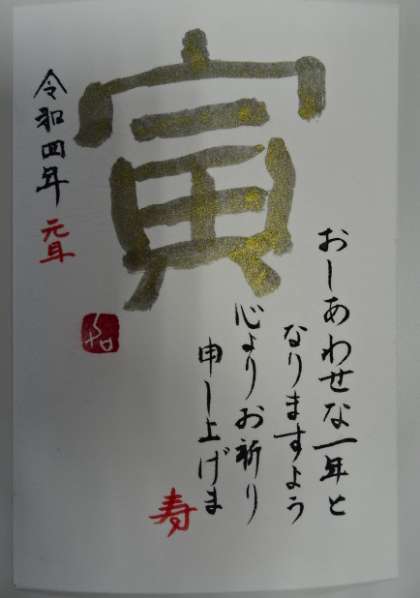 寅
おしあわせな一年と
なりますよう
心よりお祈り
申し上げま
寿
令和四年 元旦